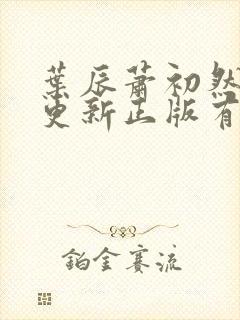 葉辰蕭初然
更新正版有
鉑金賽流